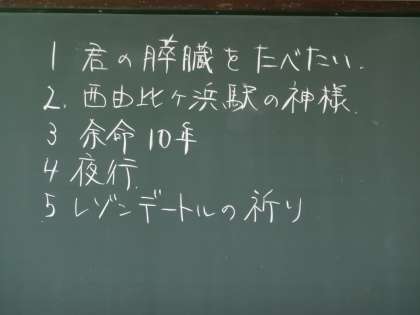 1 君の膵臓をたべたい.
2. 西由比ヶ浜駅の神様.
3 余命10年
4 夜行.
5 レゾンデートルの祈り